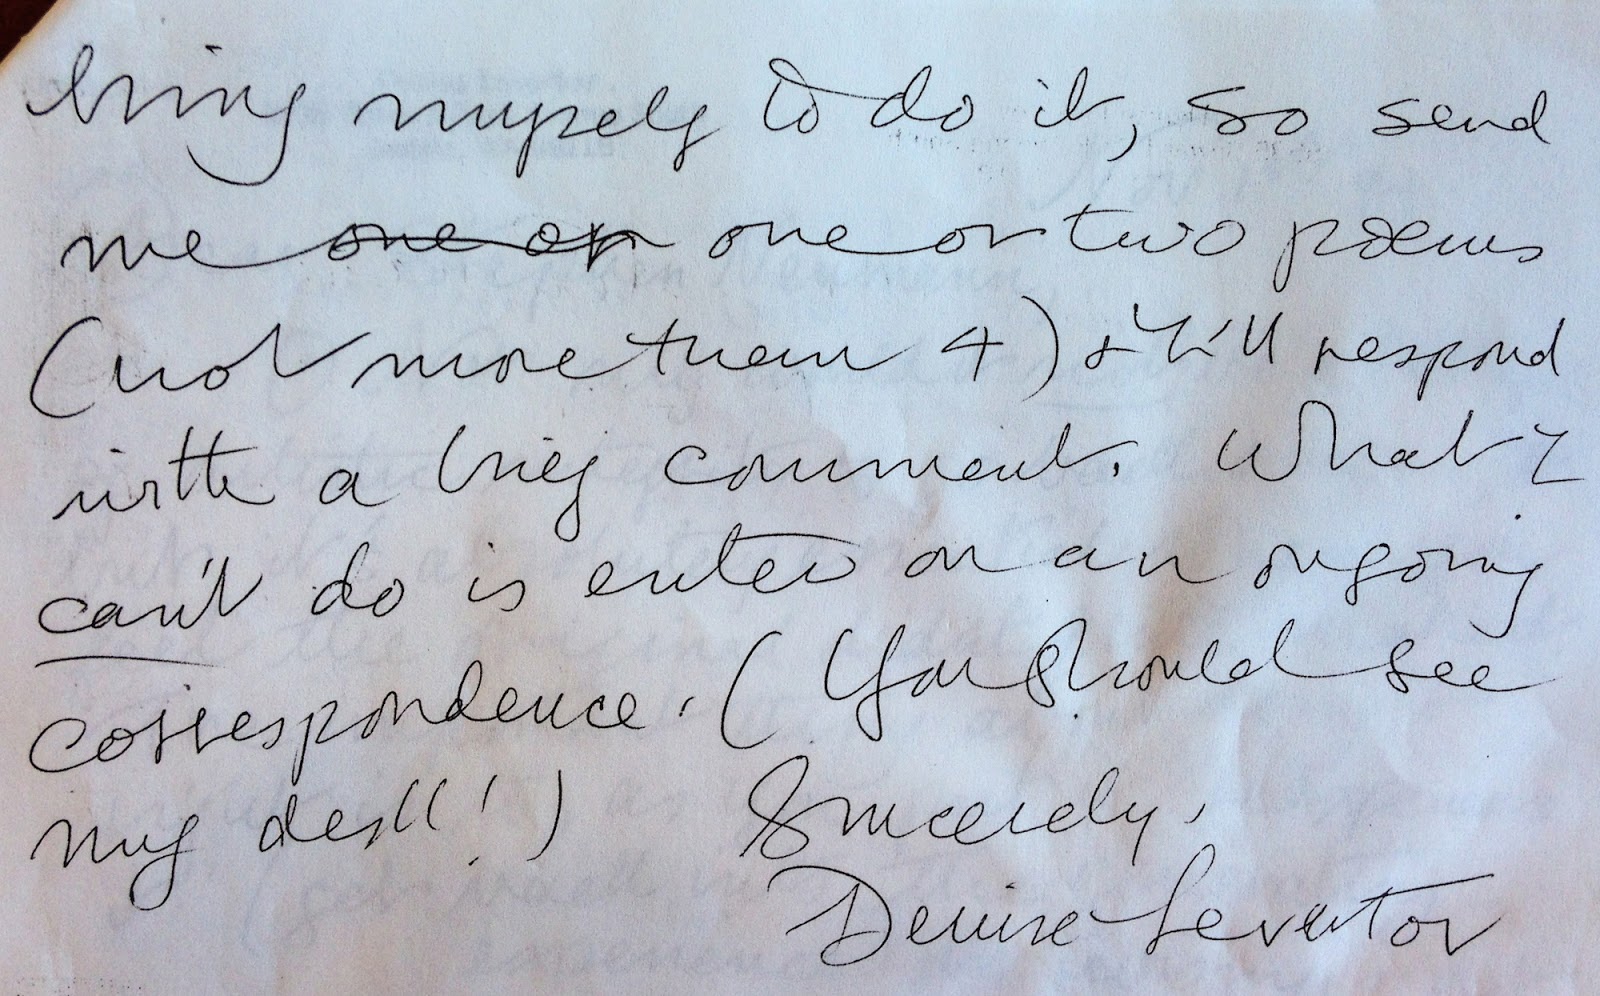 bring myself to do it, so send
me one or one or two poems
(not more than 4) & I'll respond
with a brief comment. What I
can't do is enter on an ongoing
correspondence. (You should see
my desk!)  Sincerely,
Denise Levertov